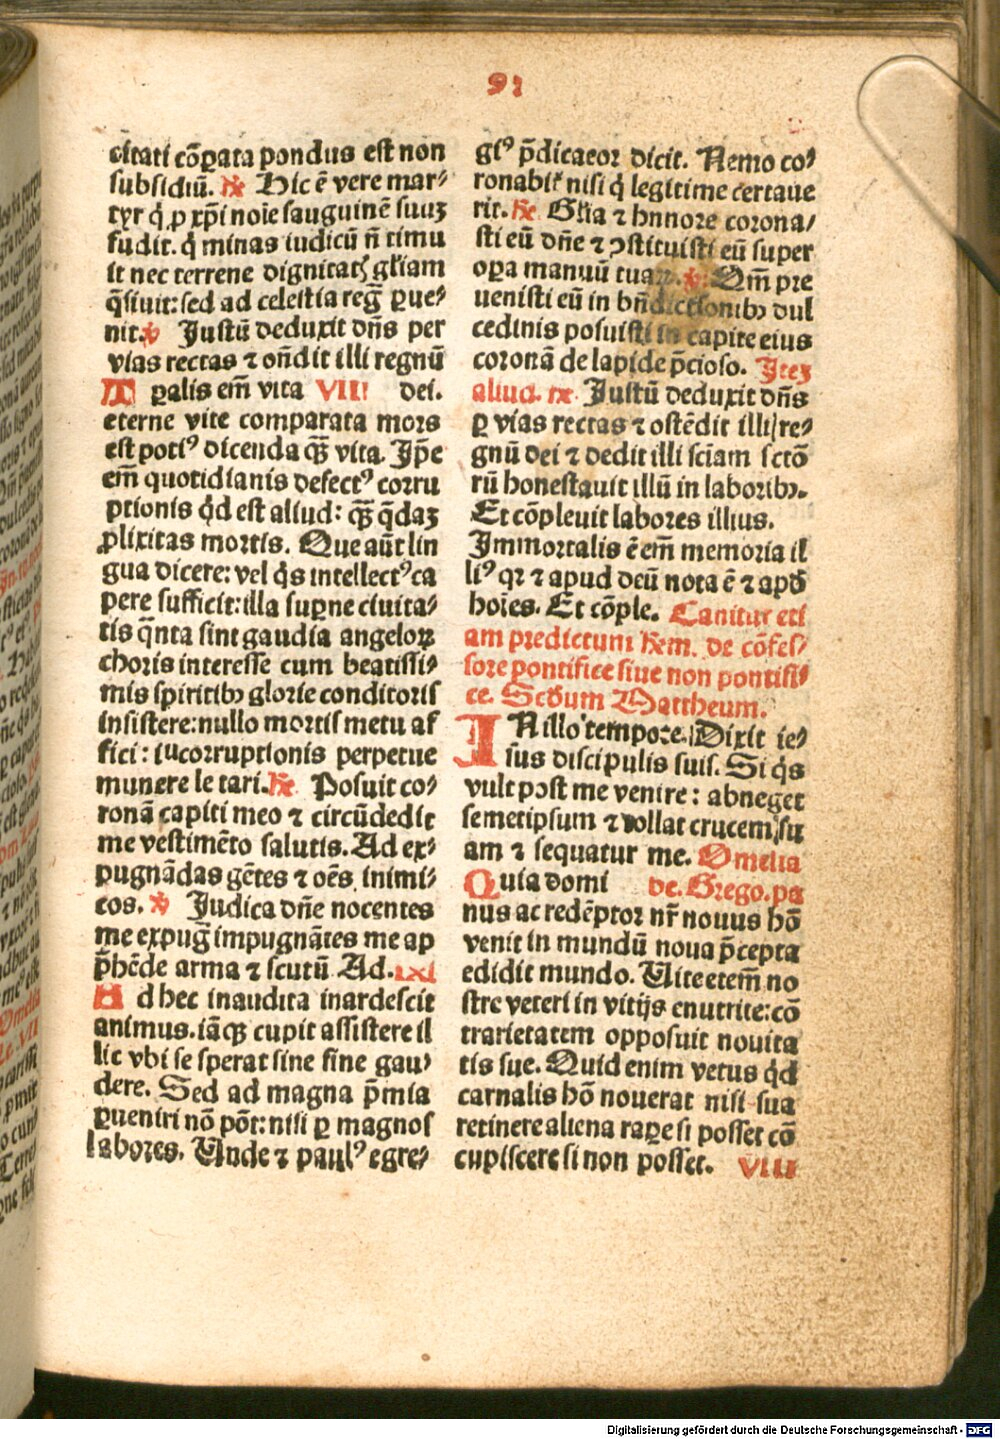 91
citati cōꝑata pondus est non
subsidiū. ℟ Hic ē vere mar⸗
tyr q̇ ꝓ xp̄i noīe sanguinē suuꝫ
fudit. q̇ minas iudicū ñ timu
it nec terrene dignitatꝭ gl̄iam
q̄siuit: sed ad celestia reg̃ ꝑue⸗
nit. ℣ Justū deduxit dñs per
vias rectas ⁊ oñdit illi regnū
Tꝑalis em̄ vita VII dei.
eterne vite comparata mors
est potiꝰ dicenda qͣꝫ vita. Jpē
em̄ quotidianis defectꝰ corru
ptionis qd̄ est aliud: qͣꝫ q̄daꝫ
ꝓlixitas mortis. Que aūt lin
gua dicere: vel q̇s intellectꝰ ca
pere sufficit: illa supne ciuita⸗
tis q̄nta sint gaudia angeloꝝ
choris interesse cum beatissi⸗
mis spiritibꝫ glorie conditoris
insistere: nullo mortis metu af
fici: incorruptionis perpetue
munere le tari. ℟ Posuit co⸗
ronā capiti meo ⁊ circūdedit
me vestimēto salutis. Ad ex⸗
pugnādas gētes ⁊ oēs inimi⸗
cos. ℣ Judica dñe nocentes
me expug̃ impugnātes me ap
p̄hēde arma ⁊ scutū Ad. ixl
Ad hec inaudita inardescit
animus. iāqꝫ cupit assistere il
lic vbi se sperat sine fine gau⸗
dere. Sed ad magna p̄mia
ꝑueniri nō pōt: nisi ꝑ magnos
labores. Unde ⁊ paulꝰ egre⸗
giꝰ p̄dicator dicit. Nemo co⸗
ronabit̄ nisi q̇ legitime certaue
rit. ℟ Gl̄ia ⁊ honore corona⸗
sti eū dñe ⁊ ꝯstituisti eū super
oꝑa manuū tuaꝝ. ℣ Qm̄ pre
uenisti eū in bñdictionibꝫ dul
cedinis posuisti in capite eius
coronā de lapide p̄cioso. Iteꝫ
aliud. ℟ Justū deduxit dñs
ꝑ vias rectas ⁊ ostēdit illi re⸗
gnū dei ⁊ dedit illi sciam sctō
rū honestauit illū in laboribꝫ.
Et cōpleuit labores illius.
Jmmortalis ē em̄ memoria il
liꝰ qꝛ ⁊ apud deū nota ē ⁊ apd̄
hoīes. Et cōple. Canitur eti
am predictum ℟em. de cōfes⸗
sore pontifice siue non pontifi⸗
ce. Scdum Mattheum.
IN illo tempore. Dixit ie⸗
sus discipulis suis. Si q̇s
vult post me venire: abneget
semetipsum ⁊ tollat crucem su
am ⁊ sequatur me. Omelia
Quia domi de. Grego. pa
nus ac redēptor nr̄ nouus hō
venit in mundū noua p̄cepta
edidit mundo. Uite etem̄ no
stre veteri in vitijs enutrite: cō
trarietatem opposuit nouita
tis sue. Quid enim vetus qd̄
carnalis hō nouerat nisi sua
retinere aliena rapere si posset cō
cupiscere si non posset. VIII